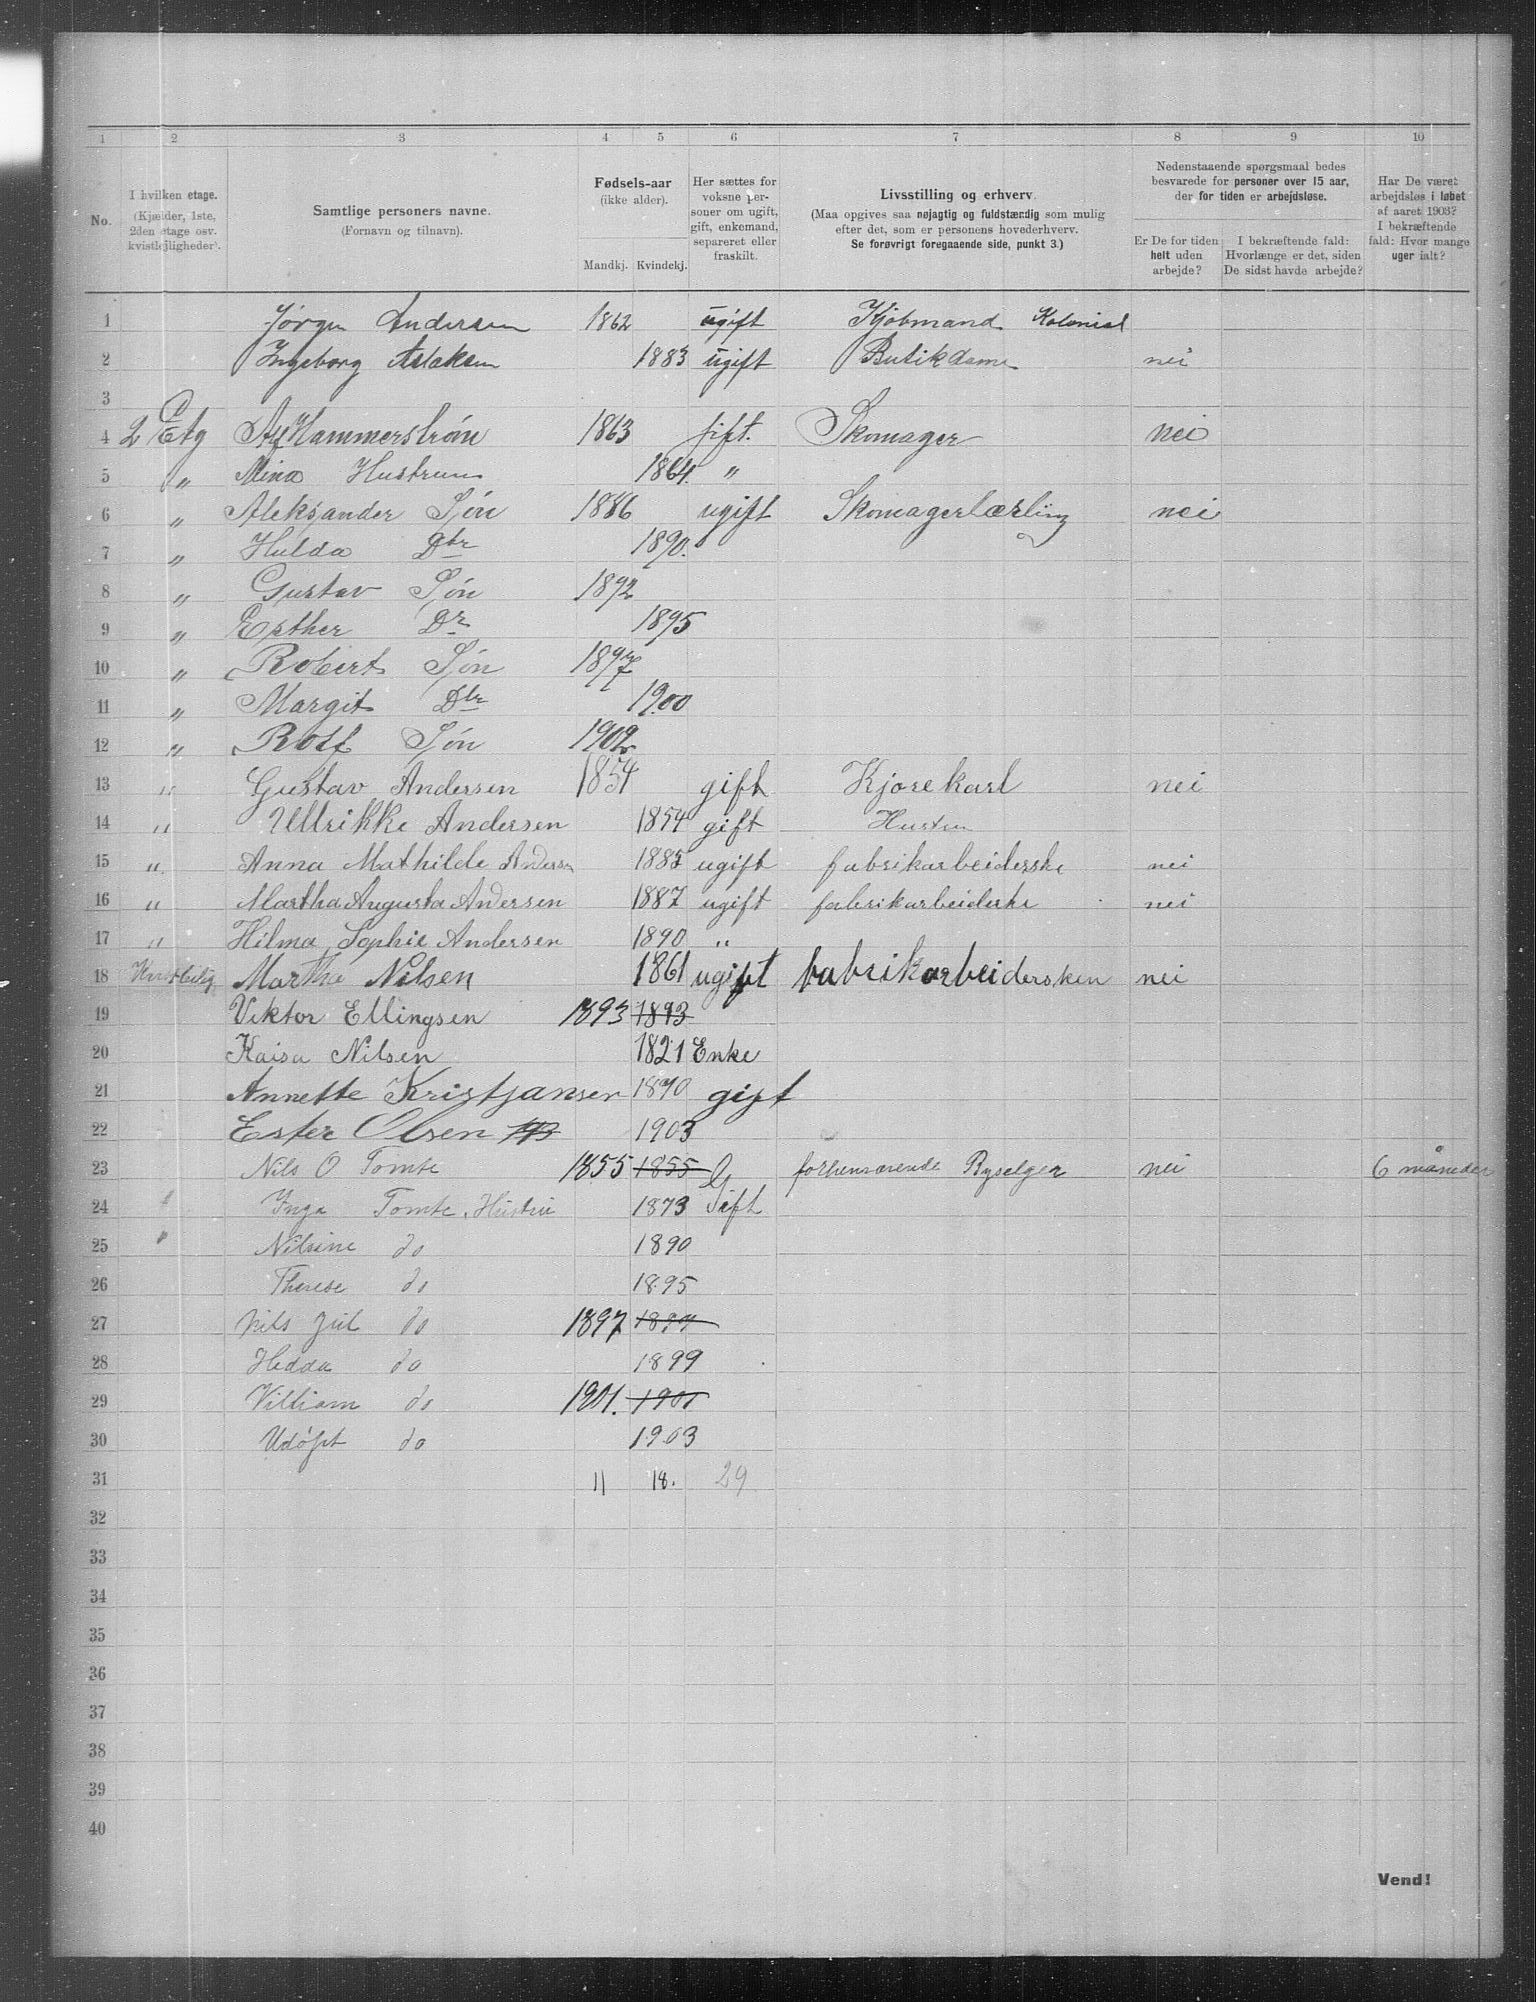 1 2 3 4 5 6 7 8 9 10
No.
I hvilken etage.
(Kjælder, 1ste,
2den etage osv.
kvistlejligheder).
Samtlige personers navne.
(Fornavn og tilnavn).
Fødsels-aar
(ikke alder).
Mandkj. Kvindekj.
Her sættes for
voksne per-
soner om ugift,
gift, enkemand,
separeret eller
fraskilt.
Livsstilling og erhverv
(Maa opgives saa nøjagtig og fuldstændig som mulig
efter det, som er personens hovederhverv.
Se forøvrigt foregaaende side, punkt 3.)
Nedenstaaende spørgsmaal bedes
besvarede for personer over 15 aar,
der for tiden er arbejdsløse.
Er De for tiden
helt uden
arbejde?
I bekræftende fald:
Hvorlænge er det, siden
De sidst havde arbejde?
Har De været
arbejdsløs i løbet
af aaret 1903?
I bekræftende
fald: Hvor mange
uger ialt?
1 Jørgen Andersen 1862 ugift Kjøbmand Kolonial
2 Ingeborg Aslaksen 1883 ugift Butikdame nei
3
4 2 Etg Hammerstrøm 1863 gift. Skomager nei
5 " Mina Hustru 1864. "
6 " Aleksander Søn 1886 ugift Skomagerlærling nei
7 " Hulda Dtr 1890.
8 " Gustav Søn 1892
9 " Esther Dr 1895
10 " Robert Søn 1897
11 " Margit Dtr 1900
12 " Rolf Søn 1902
13 " Gustav Andersen 1854 gift Kjørekarl nei
14 " Ullrikke Andersen 1854 gift Hustru
15 " Anna Mathilde Andersen 1885 ugift fabrikarbeiderske nei
16 " Martha Augusta Andersen 1887 ugift fabrikarbeiderske nei
17 " Hilma Sophie Andersen 1890 "
18 Marthe Nilsen 1861 ugift fabrikarbeidersken nei
19 Viktor Ellingsen 1893 1893
20 Kaisa Nilsen 1821 Enke
21 Annette Kristjansen 1870 gift
22 Ester Olsen 1903
23 Nils O Tomte 1855 1855 G forhenværende Ryselger nei 6 måneder
24 " Inga Tomte, Hustru 1873 Gift
25 " Nilsine do 1890
26 Therese do 1895
27 Nils Jul do 1897 1897
28 Hedda do 1899
29 Villiam do 1901. 1901
30 Udøpt do 1903
31 11 18. 29
32
33
34
35
36
37
38
39
40
Vend!